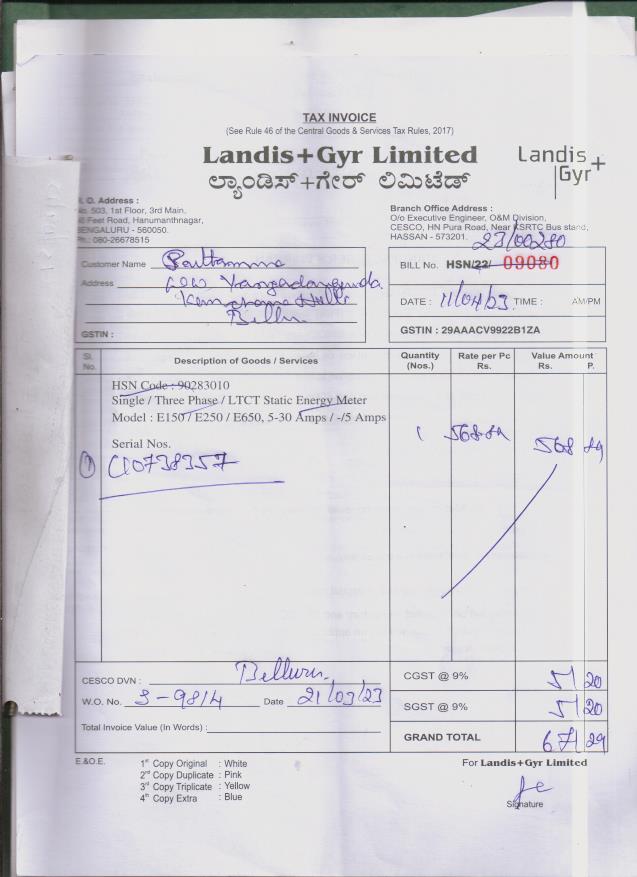 TAX INVOICE
(See Rule 46 of the Central Goods & Services Tax Rules, 2017)
Landis+Gyr Limited
ಲ್ಯಾಂಡಿಸ್+ಗೇರ್ ಲಿಮಿಟೆಡ್
Landis
Gyr+
Address :
No. 503, 1st Floor, 3rd Main,
Feet Road, Hanumanthnagar,
BENGALURU - 560050.
Ph.: 080-26678515
Branch Office Address :
O/o Executive Engineer, O&M Division,
CESCO, HN Pura Road, Near KSRTC Bus stand,
HASSAN - 573201.
23/00280
Customer Name
Address
GSTIN :
BILL No. HSN/22/ 09080
DATE : 11/04/23 TIME : AM/PM
GSTIN : 29AAACV9922B1ZA
Sl. No. Description of Goods / Services Quantity (Nos.) Rate per Pc Rs. Value Amount Rs. P.
HSN Code : 90283010
Single / Three Phase / LTCT Static Energy Meter
Model : E150 / E250 / E650, 5-30 Amps / -/5 Amps
Serial Nos.
1 568 89 568 89
1 C10738357
CESCO DVN : Belluru
W.O. No. 3-9814 Date 21/03/23
Total Invoice Value (In Words) :
CGST @ 9% 51 20
SGST @ 9% 51 20
GRAND TOTAL 671 29
E.&O.E.
1st Copy Original : White
2nd Copy Duplicate : Pink
3rd Copy Triplicate : Yellow
4th Copy Extra : Blue
For Landis+Gyr Limited
Signature